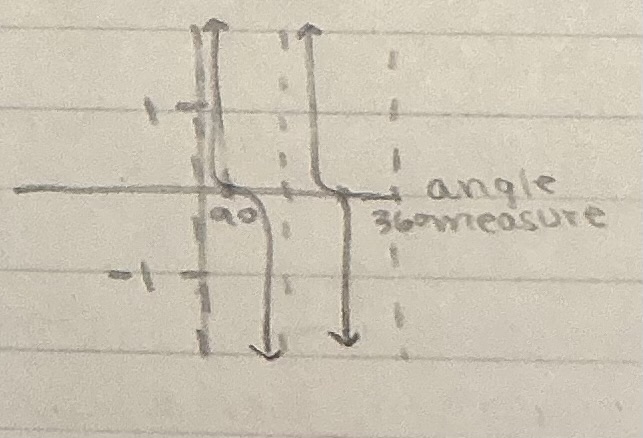 1
angle
90 360 measure
-1